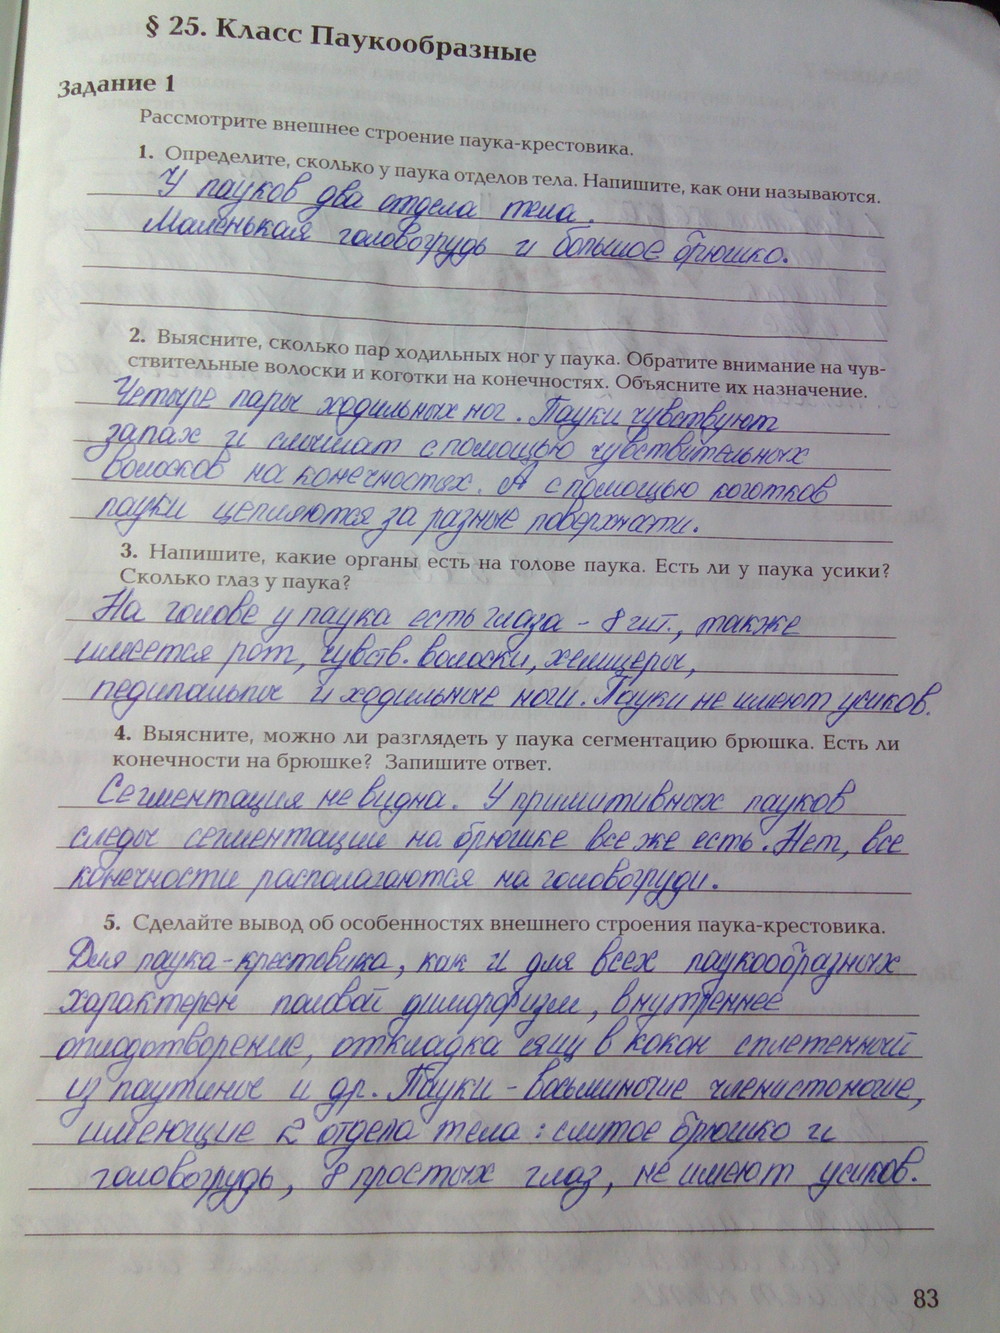 § 25. Класс Паукообразные
Задание 1
Рассмотрите внешнее строение паука-крестовика.
1. Определите, сколько у паука отделов тела. Напишите, как они называются.
У пауков два отдела тела.
Маленькая головогрудь и большое брюшко.
2. Выясните, сколько пар ходильных ног у паука. Обратите внимание на чув-
ствительные волоски и коготки на конечностях. Объясните их назначение.
Четыре пары ходильных ног. Пауки чувствуют
запах и слышат с помощью чувствительных
волосков на конечностях. А с помощью коготков
пауки цепляются за разные поверхности.
3. Напишите, какие органы есть на голове паука. Есть ли у паука усики?
Сколько глаз у паука?
На голове у паука есть глаза - 8 шт., также
имеется рот, чувств. волоски, хелицеры,
педипальпы и ходильные ноги. Пауки не имеют усиков.
4. Выясните, можно ли разглядеть у паука сегментацию брюшка. Есть ли
конечности на брюшке? Запишите ответ.
Сегментация не видна. У примитивных пауков
следы сегментации на брюшке все же есть. Нет, все
конечности распологаются на головогруди.
5. Сделайте вывод об особенностях внешнего строения паука-крестовика.
Для паука-крестовика, как и для всех паукообразных
характерен половой диморфизм, внутреннее
оплодотворение, откладка яиц в кокон сплетенный
из паутины и др. Пауки - восьминогие членистоногие,
имеющие 2 отдела тела: слитое брюшко и
головогрудь, 8 простых глаз, не имеют усиков.
83